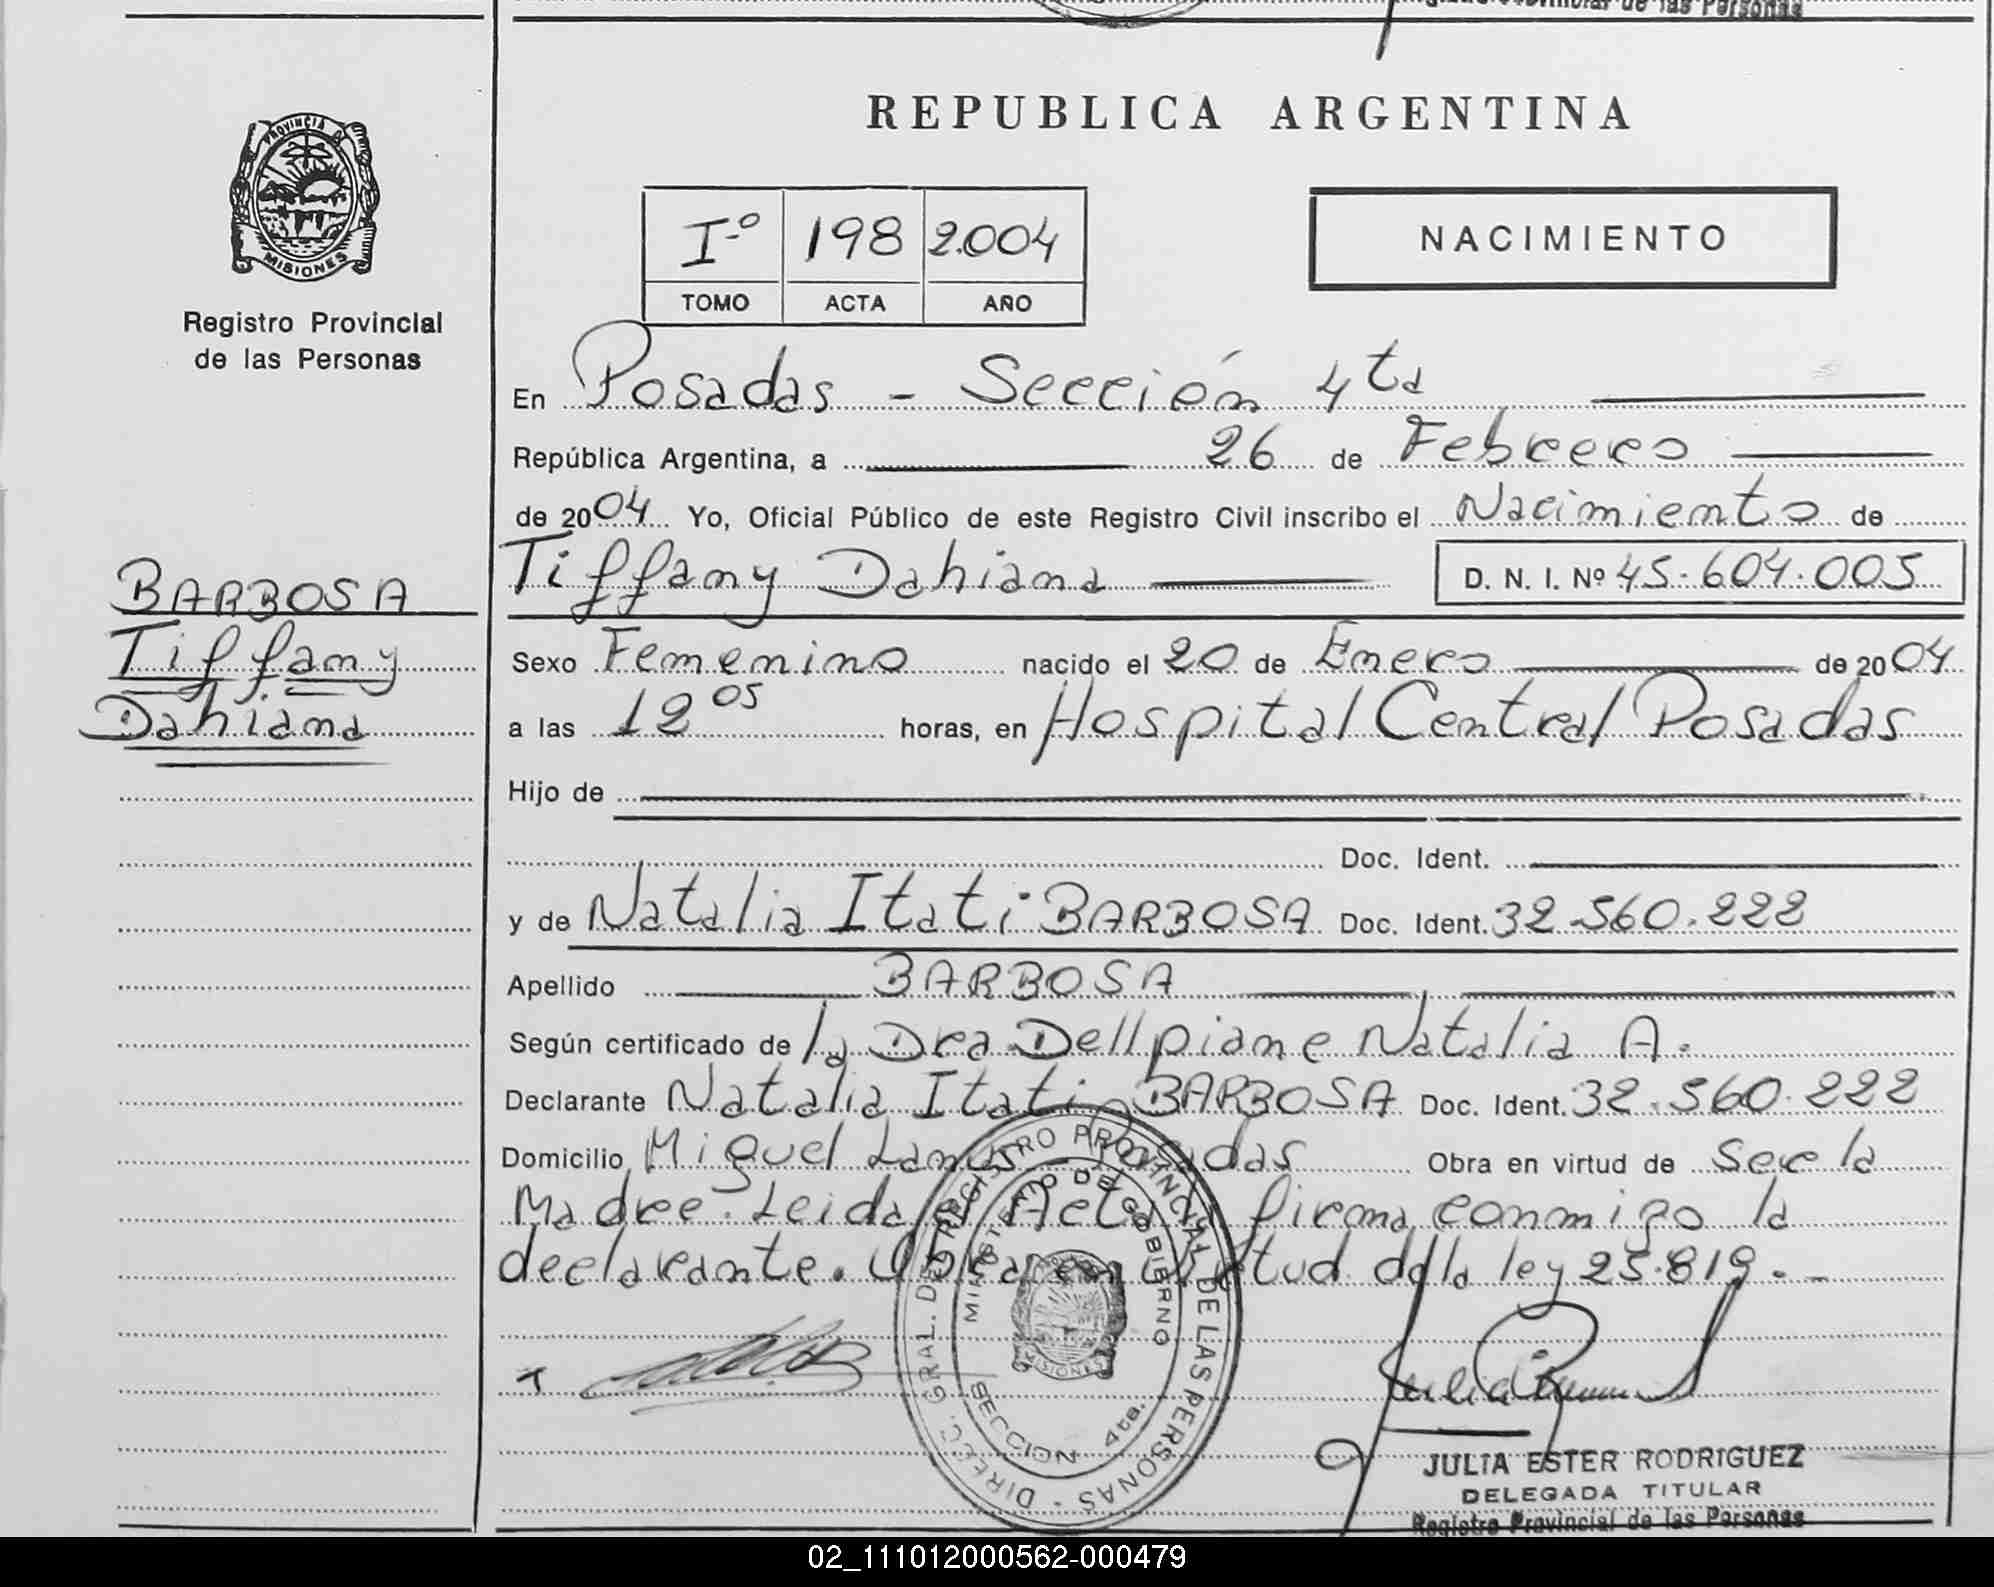 Registro Provincial de las Personas
REPUBLICA ARGENTINA
PROVINCIA DE
MISIONES
Registro Provincial
de las Personas
Iº 198 2.004
TOMO ACTA AÑO
NACIMIENTO
En Posadas - Sección 4ta
República Argentina, a 26 de Febrero
de 2004 Yo, Oficial Público de este Registro Civil inscribo el Nacimiento de
Tiffany Dahiana D. N. I. Nº 45.604.005
BARBOSA
Tiffany
Dahiana
Sexo Femenino nacido el 20 de Enero de 2004
a las 12 05 horas, en Hospital Central Posadas
Hijo de
Doc. Ident.
y de Natalia Itati BARBOSA Doc. Ident. 32.560.222
Apellido BARBOSA
Según certificado de la Dra Dellpiane Natalia A.
Declarante Natalia Itati BARBOSA Doc. Ident. 32.560.222
Domicilio Miguel Lanus Posadas Obra en virtud de Ser la
Madre. Leida el Acta firma conmigo la
declarante. Obra en virtud de la ley 25.819.-
DIRECC. GRAL. DEL REGISTRO PROVINCIAL DE LAS PERSONAS
MINISTERIO DE GOBIERNO
MISIONES
SECCION 4ta.
JULIA ESTER RODRIGUEZ
DELEGADA TITULAR
Registro Provincial de las Personas
02_111012000562-000479